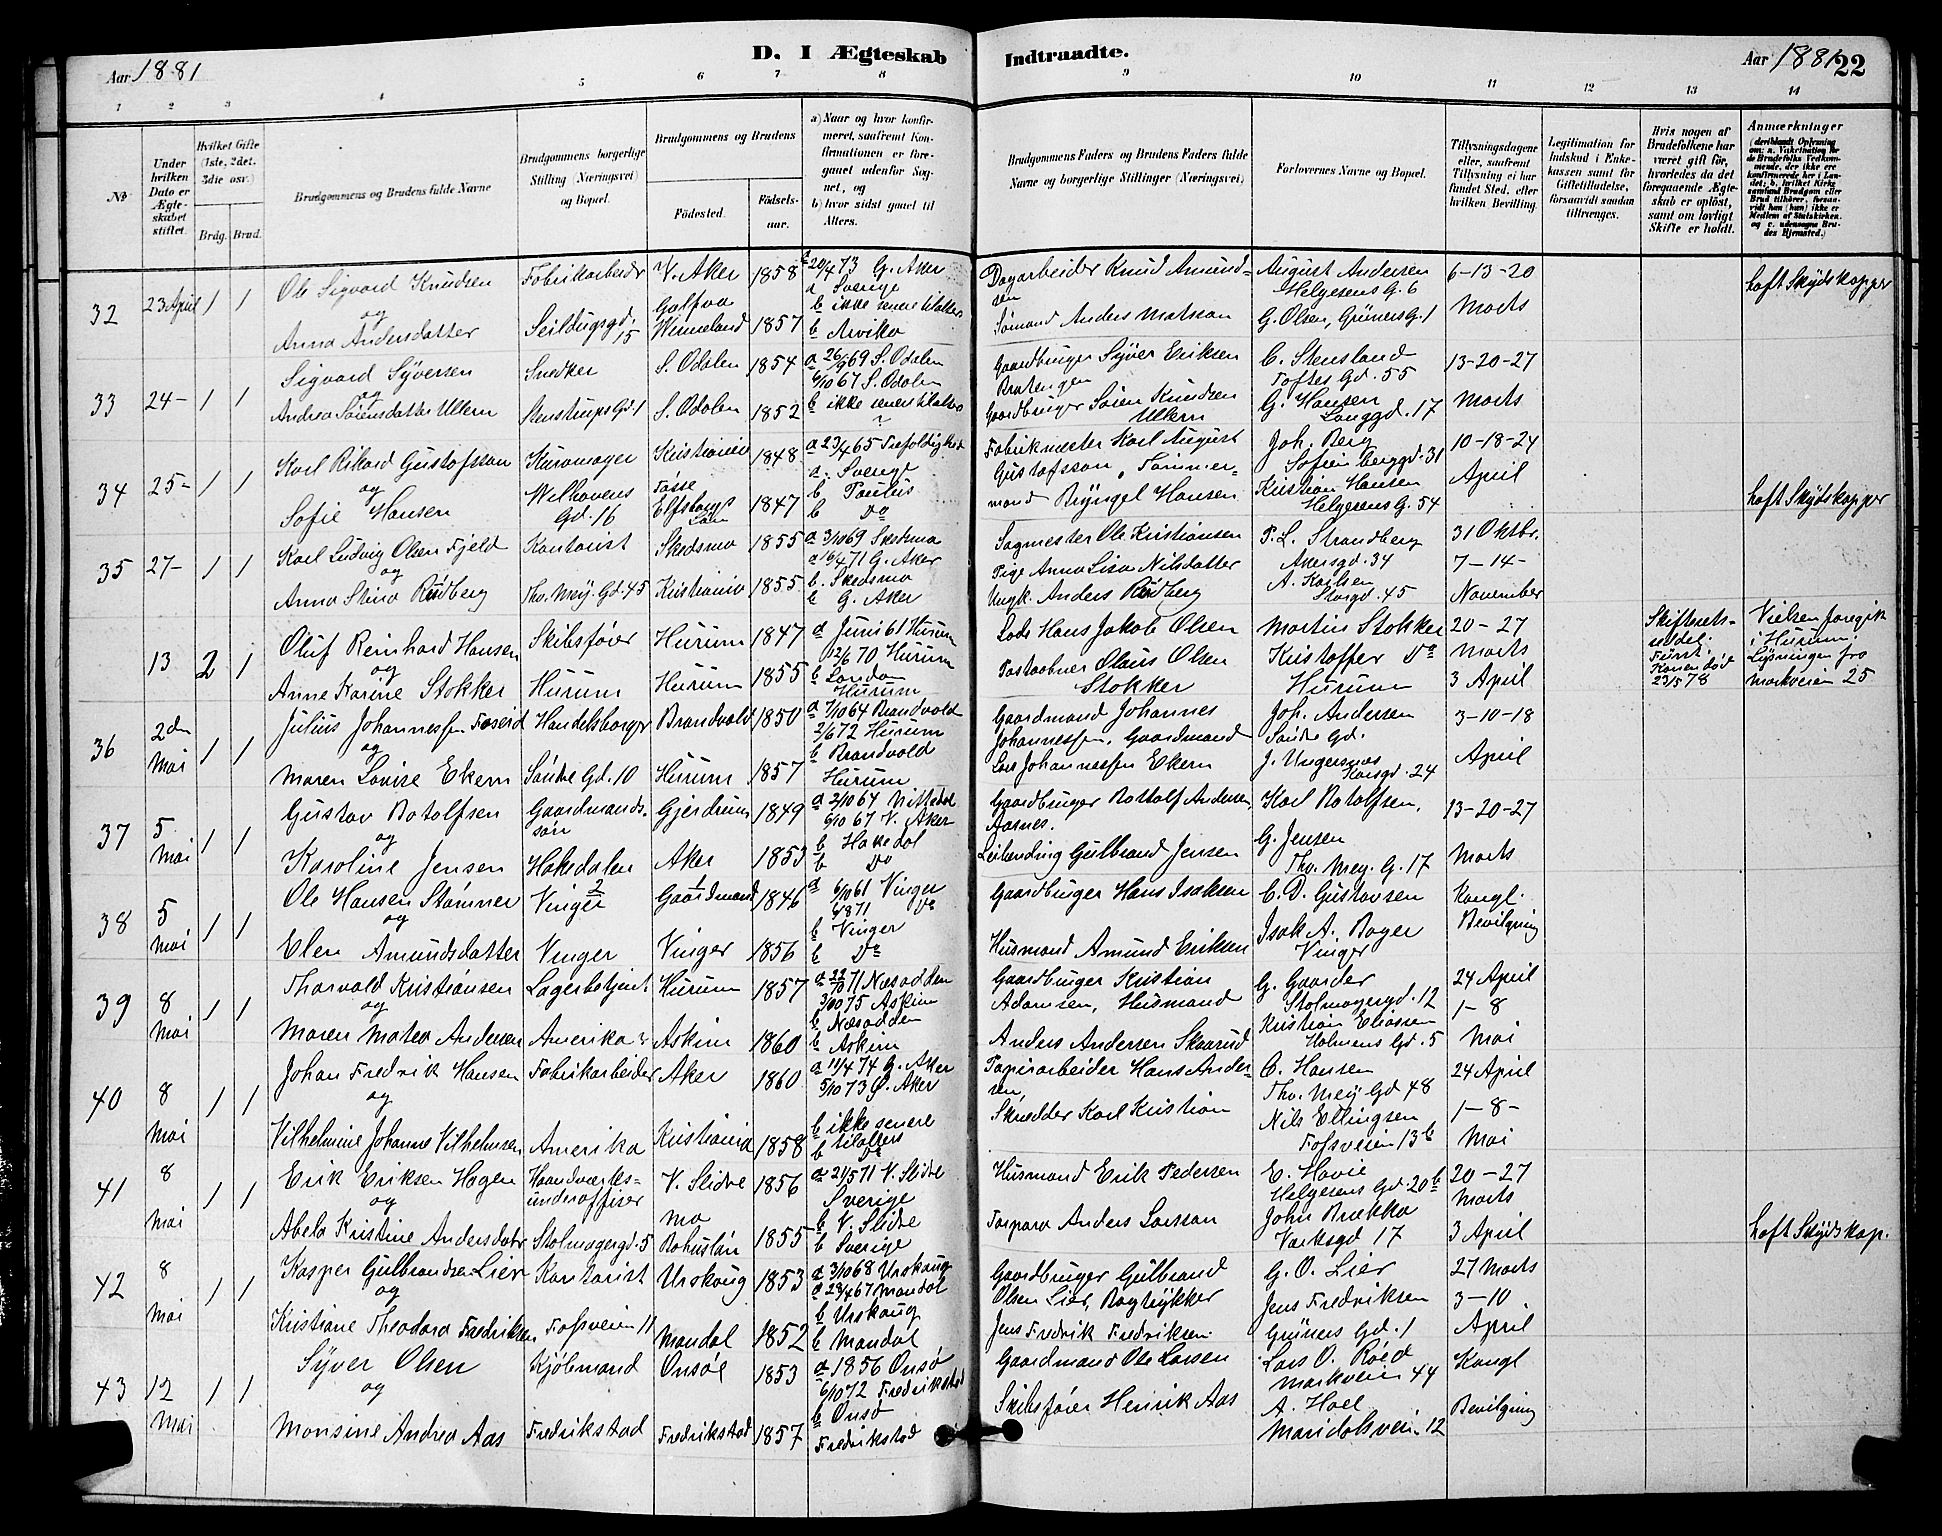 Aar 1881
D. I Ægteskab Indtraadte.
Aar 1881 22
1 2 3 4 5 6 7 8 9 10 11 12 13 14
No
Under hvilken Dato er Ægteskabet stiftet.
Hvilket Gifte (1ste, 2det, 3die osv.)
Brdg. Brud.
Brudgommens og Brudens fulde Navne
Brudgommens borgerlige Stilling (Næringsvei) og Bopæl.
Brudgommens og Brudens
Fødested.
Fødselsaar.
a) Naar og hvor konfirmeret, saafremt Konfirmationen er foregaaet udenfor Sognet, og
b) hvor sidst gaaet til Alters.
Brudgommens Faders og Brudens Faders fulde Navne og borgerlige Stillinger (Næringsvei)
Forlovernes Navne og Bopæl.
Tillysningsdagene eller, saafremt Tillysning ei har fundet Sted, efter hvilken Bevilling.
Legitimation for Indskud i Enkekassen samt for Giftetilladelse, forsaavidt saadan tiltrænges.
Hvis nogen af Brudefolkene har været gift før, hvorledes da det foregaaende Ægteskab er opløst, samt om lovligt Skifte er holdt.
Anmærkninger
(deriblandt Oplysning om: a. Vakcination for de Brudefolks Vedkommende, der ikke ere konfirmerede her i Landet; b. hvilket Kirkesamfund Brudgom eller Brud tilhører, forsaavidt han (hun) ikke er Medlem af Statskirken, og c. udensogns Brudes Hjemsted.)
32 23 April 1 1
Ole Sigvard Knudsen
og
Anna Andersdatter
Fabrikarbeider
Seildugsgd. 15
V. Aker 1858
Wermeland 1857
a 20/4 73 G. Aker
a Sverige
b ikke senere tilalters
b Arvika
Dagarbeider Knud Amundsen
Sømand Anders Matsson
August Andersen
Helgesens G. 6
G. Olsen, Grüners G. 1
6-13-20
Marts
haft Skydskopper
33 24- 1 1
Sigvard Syversen
og
Andrea Sørensdatter Ullern
Snedker
Stenstrups Gd. 1
S. Odalen 1854
S. Odalen 1852
a 26/9 69 S. Odalen
6/10 67 S. Odalen
b ikke senere tilalters
Gaardbruger Syver Eriksen
Bratengen
Gaardbruger Søren Knudsen
Ullern
C. Stensland
Toftes Gd. 55
G. Hansen
Langgd. 17
13-20-27
Marts
34 25- 1 1
Karl Rikard Gustafsson
og
Sofie Hansen
Kuramager
Welhavens
Gd. 16
Kristiania 1848
Elfsborgs
Län 1847
a 23/4 65 Trefoldighed
a. Sverige
b Paulus
b Do
Fabrikmester Karl August
Gustafsson, Tømmermand Bryngel Hansen
Joh. Berg
Sofienberggd. 31
Kristian Hansen
Helgesens G. 54
10-18-24
April
haft Skydskopper
35 27- 1 1
Karl Ludvig Olsen Fjeld
og
Anna Stina Rydberg
Kontorist
Thv. Mey. Gd. 45
Skedsmo 1855
Kristiania 1855
a 3/10 69 Skedsmo
a 16/4 71 G. Aker
b. Skedsmo
b G. Aker
Sagmester Ole Kristiansen
Pige Anna Lisa Nilsdatter
Ungk. Anders Rydberg
P. L. Strandberg
Akersgd. 34
A. Karlsen
Storgd. 45
31 Oktbr.
7-14-
November
13 2 1
Oluf Reinhard Hansen
og
Anne Karine Stokker
Skibsfører
Hurum
Hurum 1847
Hurum 1855
a Juni 61 Hurum
12/6 70 Hurum
b London
Hurum
Lods Hans Jakob Olsen
Postaabner Olaus Olsen
Stokker
Martin Stokker
Kristoffer Do
Hurum
20-27
Marts
3 April
Skifterets-
seddel.
Først.
Konen død
23/5 78
Vielsen foregik
i Hurum.
Lysningen fra
Markveien 25
36 2den Mai 1 1
Julius Johannessen Foseid
og
Maren Lovise Ekern
Handelsborger
Søndre Gd. 10
Brandvold 1850
Hurum 1857
a 7/10 64 Brandvold
2/6 72 Hurum
b Brandvold
Hurum
Gaardmand Johannes
Johannessen, Gaardmand
Lars Johannessen Ekern
Joh. Andersen
Søndre Gd.
J. Ungersnes
Korsgd. 24
3-10-18
April
37 5 Mai 1 1
Gustav Botolfsen
og
Karoline Jensen
Gaardmands-
søn
Hakedalen
Gjerdrum 1849
Aker 1853
a 2/10 64 Nittedal
6/10 67 V. Aker
b Hakedal
b Do
Gaardbruger Bottolf Andersen
Aasnes.
Leilending Gulbrand Jensen
Karl Botolfsen,
G. Jensen
Thv. Mey. G. 17
13-20-27
Marts
38 5 Mai 1 1
Ole Hansen Stømner
og
Elen Amundsdatter
2
Vinger
Vinger
1
Gaardmand 1846
Vinger 1856
a 6/10 61 Vinger
4/8 71 Do
b Vinger
b Do
Gaardbruger Hans Isaksen
Husmand Amund Eriksen
C. D. Gustavsen
Isak A. Boger
Vinger
Kongl.
Bevilgning
39 8 Mai 1 1
Thorvald Kristiansen
og
Maren Matea Andersen
Lagerbetjent
Amerika
Hurum 1857
Askim 1860
a 22/10 71 Næsodden
3/10 75 Askim
b Næsodden
b Askim
Gaardbruger Kristian
Adamsen, Husmand
Anders Andersen Skaarud
G. Gaarder
Stolmagergd. 12
Kristian Eliassen
Holmens Gd. 5
24 April
1-8
Mai
40 8 Mai 1 1
Johan Fredrik Hansen
og
Vilhelmine Johanne Vilhelmsen
Fabrikarbeider
Amerika
Aker 1860
Kristiania 1858
a 11/4 74 G. Aker
5/10 73 Ø. Aker
b ikke senere
tilalters
b Do
Papirarbeider Hans Andersen,
Skrædder Karl Kristian
O. Hansen
Thv. Mey Gd 48
Nils Ellingsen
Fossveien 13b
24 April
1-8-
Mai
41 8 Mai 1 1
Erik Eriksen Hagen
og
Abela Kristine Andersdatr
Haandværks-
underofficer
Stolmagergd. 5
V. Slidre 1856
Mo
Bohuslän 1855
a 21/5 71 V. Slidre
Sverige
b V. Slidre
b Sverige
Husmand Erik Pedersen
Torpare Anders Larsson
E. Havie
Helgesens Gd. 20b
John Brække
Værksgd 17
20-27
Marts
3 April
haft Skydskop.
42 8 Mai 1 1
Kasper Gulbrandsen Lier
og
Kristiane Theodora Fredriksen
Kontorist
Fossveien 11
Urskoug 1853
Mandal 1852
a 3/10 68 Urskoug
a 28/4 67 Mandal
b Urskoug
b Mandal
Gaardbruger Gulbrand
Olsen Lier, Bogtrykker
Jens Fredrik Fredriksen
G. O. Lier
Jens Fredriksen
Grüners Gd. 1
27 Marts
3-10
April
43 12 Mai 1 1
Syver Olsen
og
Monsine Andrea Aas
Kjøbmand
Fredrikstad
Onsøe 1853
Fredrikstad 1857
a 1856 Onsø
6/10 72 Fredrikstad
b Onsø
Fredrikstad
Gaardmand Ole Larsen
Skibsfører Henrik Aas
Lars O. Røed
Markveien 44
A. Hoel
Maridalsvei. 12
Kongl
Bevilgning